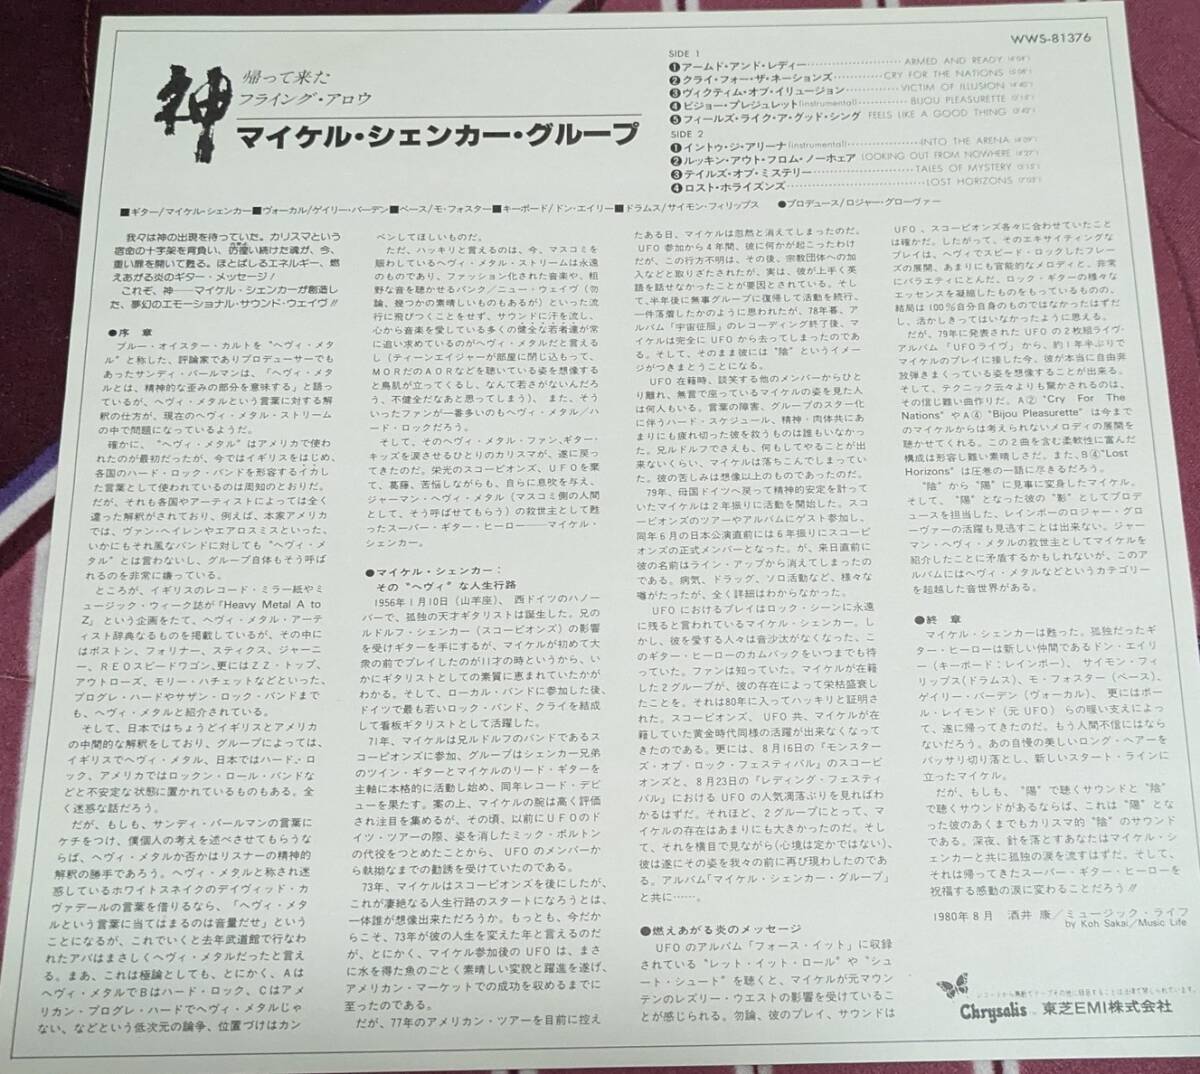 WWS-81376
神
帰って来た
フライング・アロウ
マイケル・シェンカー・グループ
SIDE 1
❶アームド・アンド・レディー ARMED AND READY (4'04")
❷クライ・フォー・ザ・ネーションズ CRY FOR THE NATIONS (5'08")
❸ヴィクティム・オブ・イリュージョン VICTIM OF ILLUSION (4'40")
❹ビジョー・プレジュレット(instrumental) BIJOU PLEASURETTE (2'16")
❺フィールズ・ライク・ア・グッド・シング FEELS LIKE A GOOD THING (3'42")
SIDE 2
❶イントゥ・ジ・アリーナ(instrumental) INTO THE ARENA (4'09")
❷ルッキン・アウト・フロム・ノーホェア LOOKING OUT FROM NOWHERE (4'27")
❸テイルズ・オブ・ミステリー TALES OF MYSTERY (3'15")
❹ロスト・ホライズンズ LOST HORIZONS (7'03")
■ギター/マイケル・シェンカー■ヴォーカル/ゲイリー・バーデン■ベース/モ・フォスター■キーボード/ドン・エイリー■ドラムス/サイモン・フィリップス ●プロデュース/ロジャー・グローヴァー
我々は神の出現を待っていた。カリスマという
宿命の十字架を背負い、彷徨い続けた魂が、今、
重い扉を開いて甦る。ほとばしるエネルギー、燃
えあがる炎のギター・メッセージ!
これぞ、神——マイケル・シェンカーが創造し
た、夢幻のエモーショナル・サウンド・ウェイヴ!!
●序 章
ブルー・オイスター・カルトを〝ヘヴィ・メタ
ル〞と称した、評論家でありプロデューサーでも
あったサンディ・パールマンは、「ヘヴィ・メタ
ルとは、精神的な歪みの部分を意味する」と語っ
ているが、ヘヴィ・メタルという言葉に対する解
釈の仕方が、現在のヘヴィ・メタル・ストリーム
の中で問題になっているようだ。
確かに、〝ヘヴィ・メタル〞はアメリカで使わ
れたのが最初だったが、今ではイギリスをはじめ、
各国のハード・ロック・バンドを形容するイカし
た言葉として使われているのは周知のとおりだ。
だが、それも各国やアーティストによっては全く
違った解釈がされており、例えば、本家アメリカ
では、ヴァン・ヘイレンやエアロスミスといった、
いかにもそれ風なバンドに対しても〝ヘヴィ・メ
タル〞とは言わないし、グループ自体もそう呼ば
れるのを非常に嫌っている。
ところが、イギリスのレコード・ミラー紙やミ
ュージック・ウィーク誌が「Heavy Metal A to
Z」という企画をたて、ヘヴィ・メタル・アーテ
ィスト辞典なるものを掲載しているが、その中に
はボストン、フォリナー、スティクス、ジャーニ
ー、REOスピードワゴン、更にはZZ・トップ、
アウトローズ、モリー・ハチェットなどといった、
プログレ・ハードやサザン・ロック・バンドまで
も、ヘヴィ・メタルと紹介されている。
そして、日本ではちょうどイギリスとアメリカ
の中間的な解釈をしており、グループによっては、
イギリスでヘヴィ・メタル、日本ではハード・ロ
ック、アメリカではロックン・ロール・バンドな
どと不安定な状態に置かれているものもある。全
く迷惑な話だろう。
だが、もしも、サンディ・パールマンの言葉に
ケチをつけ、僕個人の考えを述べさせてもらうな
らば、ヘヴィ・メタルか否かはリスナーの精神的
解釈の勝手であろう。ヘヴィ・メタルと称され迷
惑しているホワイトスネイクのデイヴィッド・カ
ヴァデールの言葉を借りるなら、「ヘヴィ・メタ
ルという言葉に当てはまるのは音量だぜ」という
ことになるが、これでいくと去年武道館で行なわ
れたアバはまさしくヘヴィ・メタルだったと言え
る。まあ、これは極論としても、とにかく、Aは
ヘヴィ・メタルでBはハード・ロック、Cはアメ
リカン・プログレ・ハードでヘヴィ・メタルじゃ
ない、などという低次元の論争、位置づけはカン
ベンしてほしいものだ。
ただ、ハッキリと言えるのは、今、マスコミを
賑わしているヘヴィ・メタル・ストリームは永遠
のものであり、ファッション化された音楽や、粗
野な音を聴かせるパンク/ニュー・ウェイヴ(勿
論、幾つかの素晴しいものもあるが)といった流
行に飛びつくことをせず、サウンドに汗を流し、
心から音楽を愛している多くの健全な若者達が常
に追い求めているのがヘヴィ・メタルだと言える
し(ティーンエイジャーが部屋に閉じ込もって、
MORだのAORなどを聴いている姿を想像する
と鳥肌が立ってくるし、なんて若さがないんだろ
う、不健全だなあと思ってしまう)、また、そう
いったファンが一番多いのもヘヴィ・メタル/ハ
ード・ロックだろう。
そして、そのヘヴィ・メタル・ファン、ギター・
キッズを涙させるひとりのカリスマが、遂に戻っ
てきたのだ。栄光のスコーピオンズ、UFOを棄
て、葛藤、苦悩しながらも、自らに息吹を与え、
ジャーマン・ヘヴィ・メタル(マスコミ側の人間
として、そう呼ばせてもらう)の救世主として甦
ったスーパー・ギター・ヒーロー——マイケル・
シェンカー。
●マイケル・シェンカー:
その〝ヘヴィ〞な人生行路
1956年1月10日(山羊座)、西ドイツのハノー
バーで、孤独の天才ギタリストは誕生した。兄の
ルドルフ・シェンカー(スコーピオンズ)の影響
を受けギターを手にするが、マイケルが初めて大
衆の前でプレイしたのが11才の時というから、い
かにギタリストとしての素質に恵まれていたかが
わかる。そして、ローカル・バンドに参加した後、
ドイツで最も若いロック・バンド、クライを結成
して看板ギタリストとして活躍した。
71年、マイケルは兄ルドルフのバンドであるス
コーピオンズに参加、グループはシェンカー兄弟
のツイン・ギターとマイケルのリード・ギターを
主軸に本格的に活動し始め、同年レコード・デビ
ューを果たす。案の上、マイケルの腕は高く評価
され注目を集めるが、その頃、以前にUFOのド
イツ・ツアーの際、姿を消したミック・ボルトン
の代役をつとめたことから、UFOのメンバーか
ら執拗なまでの勧誘を受けていたのである。
73年、マイケルはスコーピオンズを後にしたが、
これが凄絶なる人生行路のスタートになろうとは、
一体誰が想像出来ただろうか。もっとも、今だか
らこそ、73年が彼の人生を変えた年と言えるのだ
が、とにかく、マイケル参加後のUFOは、まさ
に水を得た魚のごとく素晴しい変貌と躍進を遂げ、
アメリカン・マーケットでの成功を収めるまでに
至ったのである。
だが、77年のアメリカン・ツアーを目前に控え
たある日、マイケルは忽然と消えてしまったのだ。
UFO参加から4年間、彼に何かが起こったわけ
だが、この行方不明は、その後、宗教団体への加
入などと取りざたされたが、実は、彼が上手く英
語を話せなかったことが要因とされている。そし
て、半年後に無事グループに復帰して活動を続行、
一件落着したかのように思われたが、78年暮、ア
ルバム「宇宙征服」のレコーディング終了後、マ
イケルは完全にUFOから去ってしまったのであ
る。そして、そのまま彼には〝陰〞というイメー
ジがつきまとうことになる。
UFO在籍時、談笑する他のメンバーからひと
り離れ、無言で座っているマイケルの姿を見た人
は何人もいる。言葉の障害、グループのスター化
に伴うハード・スケジュール、精神・肉体共にあ
まりにも疲れ切った彼を救うものは誰もいなかっ
た。兄ルドルフでさえも、何もしてやることが出
来ないくらい、マイケルは落ちこんでしまってい
た。彼の苦しみは想像以上のものであったのだ。
79年、母国ドイツへ戻って精神的安定を計って
いたマイケルは2年振りに活動を開始した。スコ
ーピオンズのツアーやアルバムにゲスト参加し、
同年6月の日本公演直前には6年振りにスコーピ
オンズの正式メンバーとなった。が、来日直前に
彼の名前はライン・アップから消えてしまったの
である。病気、ドラッグ、ソロ活動など、様々な
噂がたったが、全く詳細はわからなかった。
UFOにおけるプレイはロック・シーンに永遠
に残ると言われているマイケル・シェンカー。し
かし、彼を愛する人々は音沙汰がなくなった、こ
のギター・ヒーローのカムバックをいつまでも待
っていた。ファンは知っていた。マイケルが在籍
した2グループが、彼の存在によって栄枯盛衰し
たことを。それは80年に入ってハッキリと証明さ
れた。スコーピオンズ、UFO共、マイケルが在
籍していた黄金時代同様の活躍が出来なくなって
きたのである。更には、8月16日の『モンスター
ズ・オブ・ロック・フェスティバル』のスコーピ
オンズと、8月23日の『レディング・フェスティ
バル』におけるUFOの人気凋落ぶりを見ればわ
かるはずだ。それほど、2グループにとって、マ
イケルの存在はあまりにも大きかったのだ。そし
て、それを横目で見ながら(心境は定かではない)、
彼は遂にその姿を我々の前に再び現わしたのであ
る。アルバム「マイケル・シェンカー・グループ」
と共に……。
●燃えあがる炎のメッセージ
UFOのアルバム「フォース・イット」に収録
されている〝レット・イット・ロール〞や〝シュ
ート・シュート〞を聴くと、マイケルが元マウン
テンのレズリー・ウエストの影響を受けているこ
とが感じられる。勿論、彼のプレイ、サウンドは
UFO、スコーピオンズ各々に合わせていたこと
は確かだ。したがって、そのエキサイティングな
プレイは、ヘヴィでスピード・ロックしたフレー
ズの展開、あまりにも官能的なメロディと、非常
にバラエティにとんだ、ロック・ギターの様々な
エッセンスを凝縮したものをもっているものの、
結局は100%自分自身のものではなかったはずだ
し、活かしきってはいなかったように思える。
だが、79年に発表されたUFOの2枚組ライヴ・
アルバム「UFOライヴ」から、約1年半ぶりで
マイケルのプレイに接した今、彼が本当に自由非
放弾きまくっている姿を想像することが出来る。
そして、テクニック云々よりも驚かされるのは、
その信じ難い曲作りだ。A②〝Cry For The
Nations〞やA④〝Bijou Pleasurette〞は今まで
のマイケルからは考えられないメロディの展開を
聴かせてくれる。この2曲を含む柔軟性に富んだ
構成は形容し難い素晴しさだ。また、B④〝Lost
Horizons〞は圧巻の一語に尽きるだろう。
〝陰〞から〝陽〞に見事に変身したマイケル。
そして、〝陽〞となった彼の〝影〞としてプロデ
ュースを担当した、レインボーのロジャー・グロ
ーヴァーの活躍も見逃すことは出来ない。ジャー
マン・ヘヴィ・メタルの救世主としてマイケルを
紹介したことに矛盾するかもしれないが、このア
ルバムにはヘヴィ・メタルなどというカテゴリー
を超越した音世界がある。
●終 章
マイケル・シェンカーは甦った。孤独だったギ
ター・ヒーローは新しい仲間であるドン・エイリ
ー(キーボード:レインボー)、サイモン・フィ
リップス(ドラムス)、モ・フォスター(ベース)、
ゲイリー・バーデン(ヴォーカル)、更にはポー
ル・レイモンド(元UFO)らの暖い支えによっ
て、遂に帰ってきたのだ。もう人間不信にはなら
ないだろう。あの自慢の美しいロング・ヘアーを
バッサリ切り落とし、新しいスタート・ラインに
立ったマイケル。
だが、もしも、〝陽〞で聴くサウンドと〝陰〞
で聴くサウンドがあるならば、これは〝陽〞とな
った彼のあくまでもカリスマ的〝陰〞のサウンド
である。深夜、針を落とすあなたはマイケル・シ
ェンカーと共に孤独の涙を流すはずだ。そして、
それは帰ってきたスーパー・ギター・ヒーローを
祝福する感動の涙に変わることだろう!!
1980年8月 酒井 康/ミュージック・ライフ
by Koh Sakai/Music Life
レコードから無断でテープその他に録音することは法律で禁じられています。
Chrysalis 東芝EMI株式会社